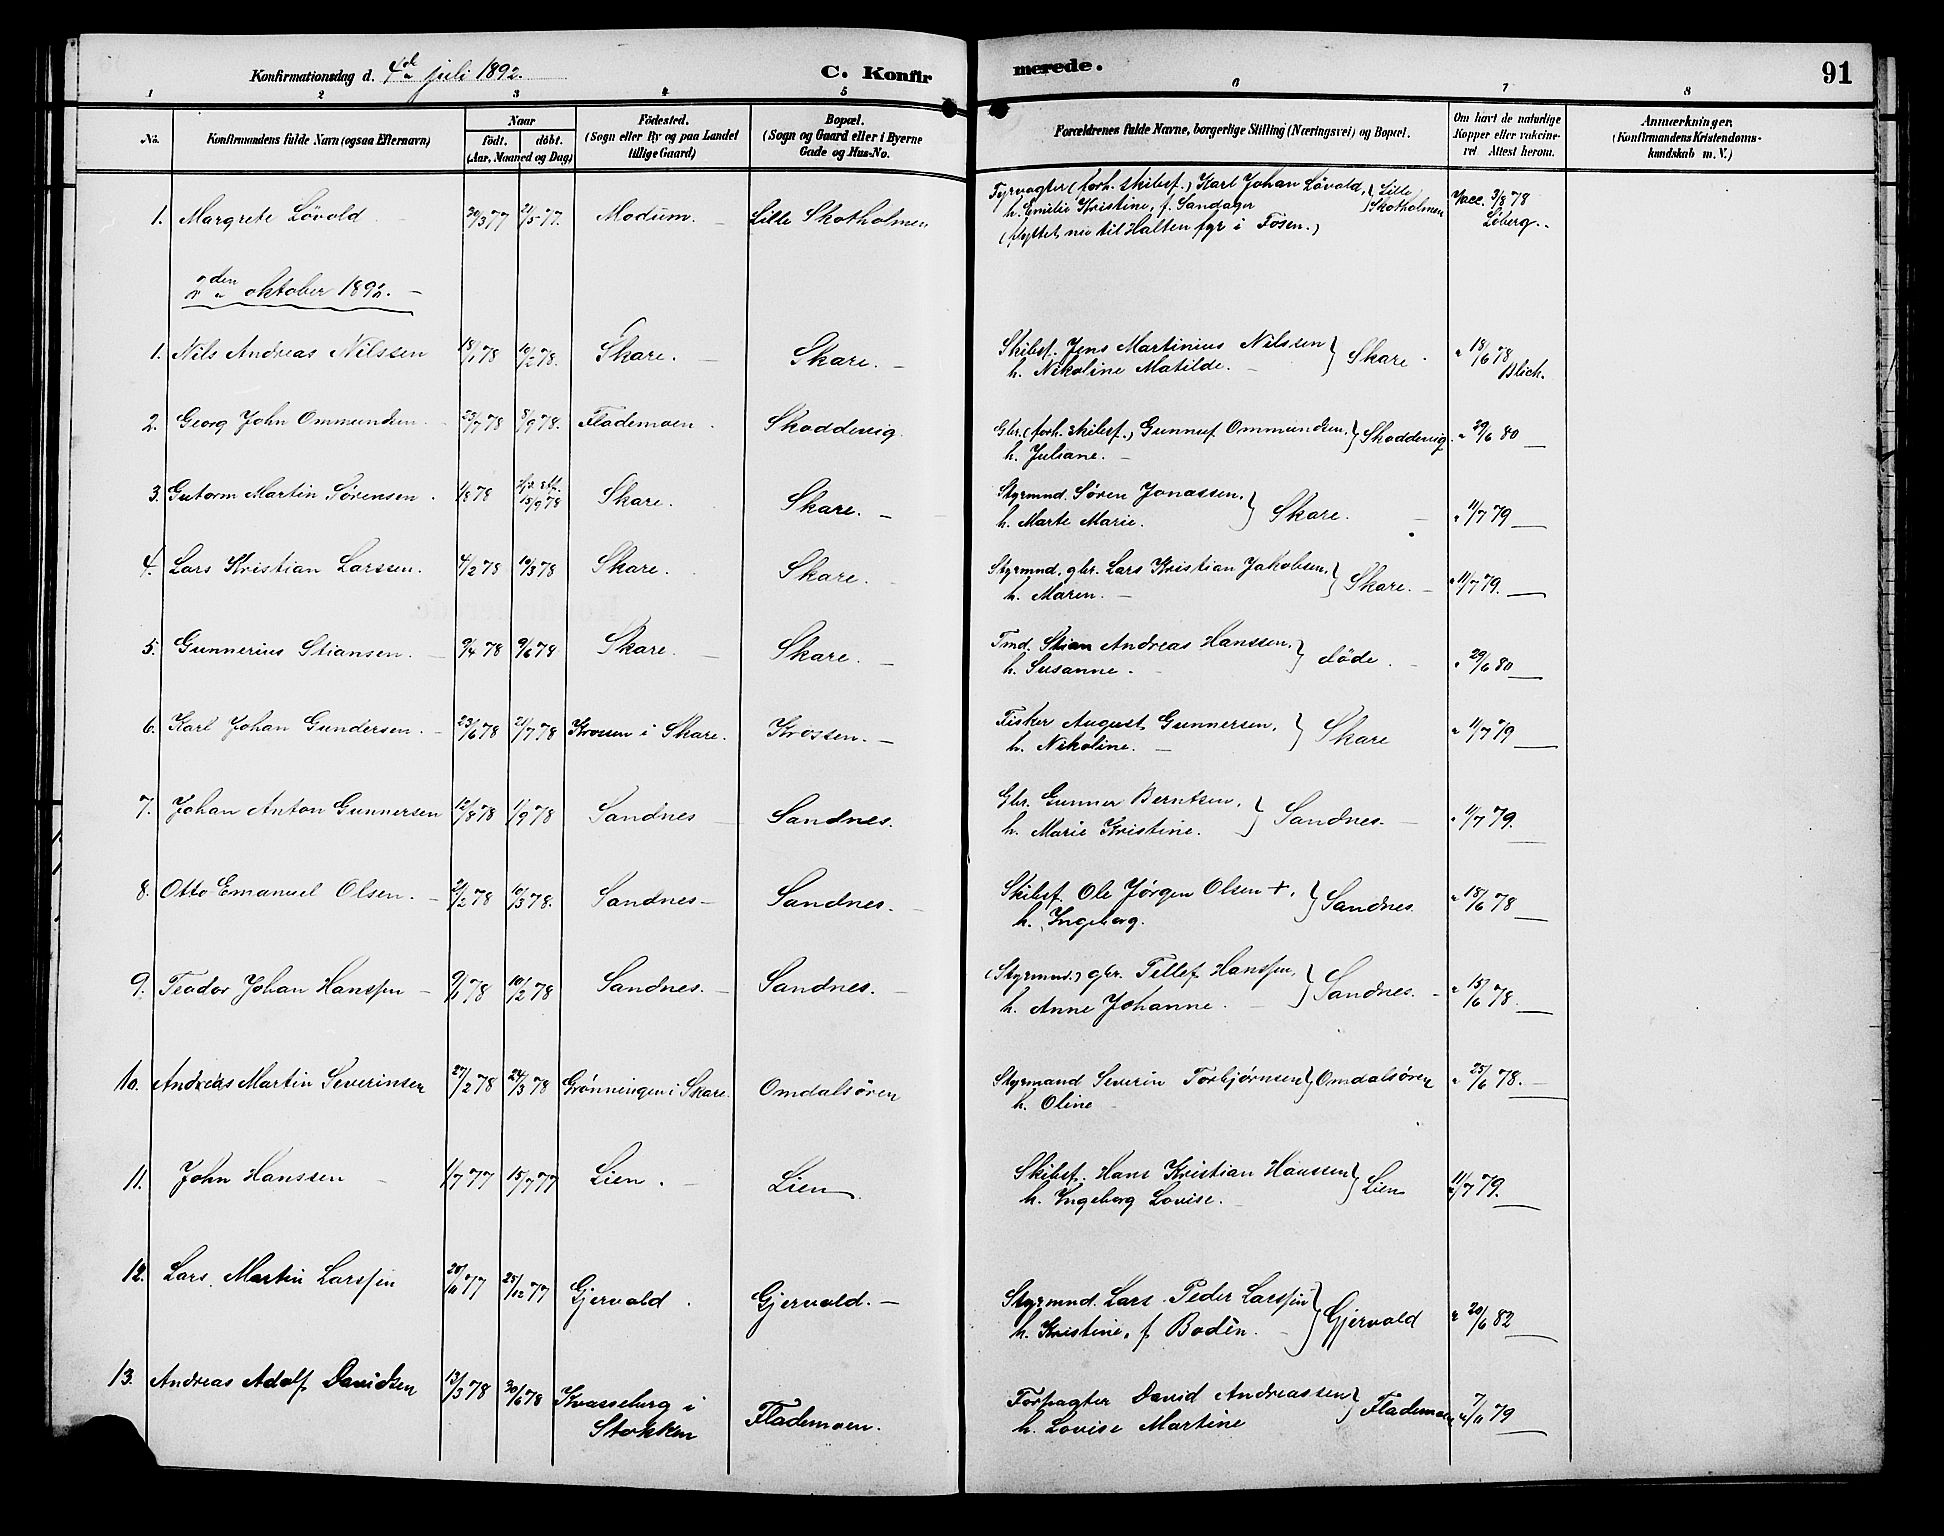 Konfirmationsdag d. 4de juli 1892. C. Konfirmerede. 91
1 2 3 4 5 6 7 8
No. Konfirmandens fulde Navn (ogsaa Efternavn) Naar födt. döbt. (Aar, Maaned og Dag) Födested. (Sogn eller By og paa Landet tillige Gaard) Bopæl. (Sogn og Gaard eller i Byerne Gade og Hus-No. Forældrenes fulde Navne, borgerlige Stilling (Næringsvei) og Bopæl. Om havt de naturlige Kopper eller vakcineret Attest herom. Anmærkninger, (Konfirmandens Kristendomskundskab m. V.)
1. Margrete Lövold 30/3 77 21/5 77. Modum. Lille Skotholmen Fyrvagter (forh. skibsf.) Karl Johan Lövold, } Lille Skotholmen Vacc. 3/8 78
h. Emilie Kristine, f. Sandager Löberg.
(flyttet nu til Halten fyr i Fosen.)
den oktober 1892.
1. Nils Andreas Nilssen 18/1 78 10/2 78. Skare. Skare. Skibsf. Jens Martinius Nilssen } Skare " 18/6 78
h. Nikoline Matilde. Blich.
2. Georg John Ommundsen 23/7 78 8/9 78. Flademoen Skoddevig. Gbr. (forh. skibsf.) Gunnuf Ommundsen, } Skoddevig " 29/6 80
h. Juliane.
3. Gutorm Martin Sörensen 1/8 78 15/9 78 Skare. Skare. Styrmnd. Sören Jonassen, } Skare. " 11/7 79
h. Marte Marie.
4. Lars Kristian Larssen. 4/2 78 10/3 78 Skare. Skare. Styrmnd. gbr. Lars Kristian Jakobsen, } Skare. " 11/7 79.
h. Maren.
5. Gunnerius Stiansen. 9/4 78 9/6 78 Skare. Skare. Tmd. Stian Andreas Hanssen, } döde. " 29/6 80
h. Susanne.
6. Karl Johan Gundersen. 23/6 78 21/7 78 Krossen i Skare. Krossen. Fisker August Gunnersen, } Skare " 11/7 79
h. Nikoline.
7. Johan Anton Gunnersen 12/8 78 1/9 78 Sandnes Sandnes. Gbr. Gunner Berntsen, } Sandnes. " 11/7 79.
h. Marie Kristine.
8. Otto Emanuel Olsen. 2/2 78 10/3 78. Sandnes Sandnes. Skibsf. Ole Jörgen Olsen +, } Sandnes. " 18/6 78
h. Ingeborg.
9. Teodor Johan Hanssen 9/1 78 10/2 78 Sandnes. Sandnes. (Styrmnd.) gbr. Tellef Hanssen, } Sandnes. " 15/6 78.
h. Anne Johanne.
10. Andreas Martin Severinsen 27/2 78 24/3 78 Grönningen i Skare. Omdalsören Styrmand Severin Torbjörnsen } Omdalsören " 25/6 78.
h. Oline
11. John Hanssen 1/7 77 15/7 77 Lien. Lien. Skibsf. Hans Kristian Hanssen } Lien " 11/7 79.
h. Ingeborg Lovise.
12. Lars Martin Larssen 20/11 77 25/12 77 Gjervold. Gjervold. Styrmnd. Lars Peder Larssen } Gjervold " 20/6 82
h. Kristine, f. Bodén.
13. Andreas Adolf Davidsen 13/3 78 30/6 78 Kvasseberg i Stokken Flademoen. Forpagter David Andreassen } Flademoen " 7/11 79
h. Lovise Martine